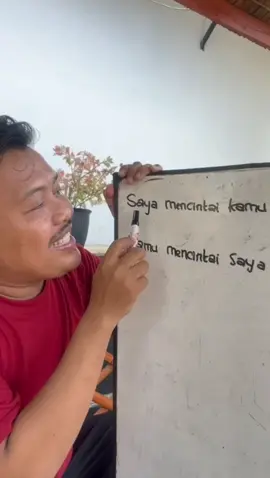 Saya mencintai kamu
kamu mencintai Saya